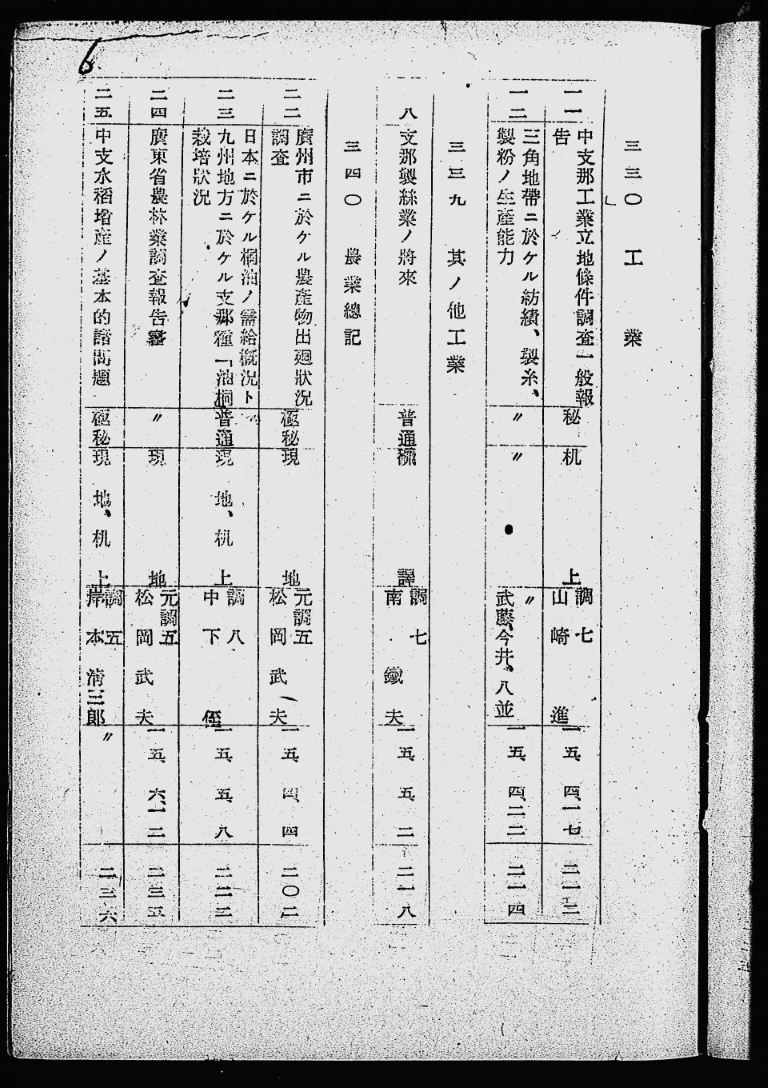 6
三三〇 工業
一一 中支那工業立地條件調査一般報告 秘 机上 調七 山崎進 一五、四、一七 二一二
一二 三角地帶ニ於ケル紡績、製糸、製粉ノ生産能力 〃 〃 〃 武藤、今井、八並 一五、四、二二 二一四
三三九 其ノ他工業
八 支那製絲業ノ將來 普通 飜譯 調七 南鐵夫 一五、五、二 二一八
三四〇 農業總記
二二 廣州市ニ於ケル農産物出廻狀況調査 極秘 現地 元調五 松岡武夫 一五、四、四 二〇二
二三 日本ニ於ケル桐油ノ需給槪況ト九州地方ニ於ケル支那種「油桐」栽培狀況 普通 現地、机上 調八 中下 一五、五、八 二二二
二四 廣東省農林業調査報告書 〃 現地 元調五 松岡武夫 一五、六、一二 二三五
二五 中支水稻增産ノ基本的諸問題 極秘 現地、机上 調五 岸本淸三郎 〃 二三六